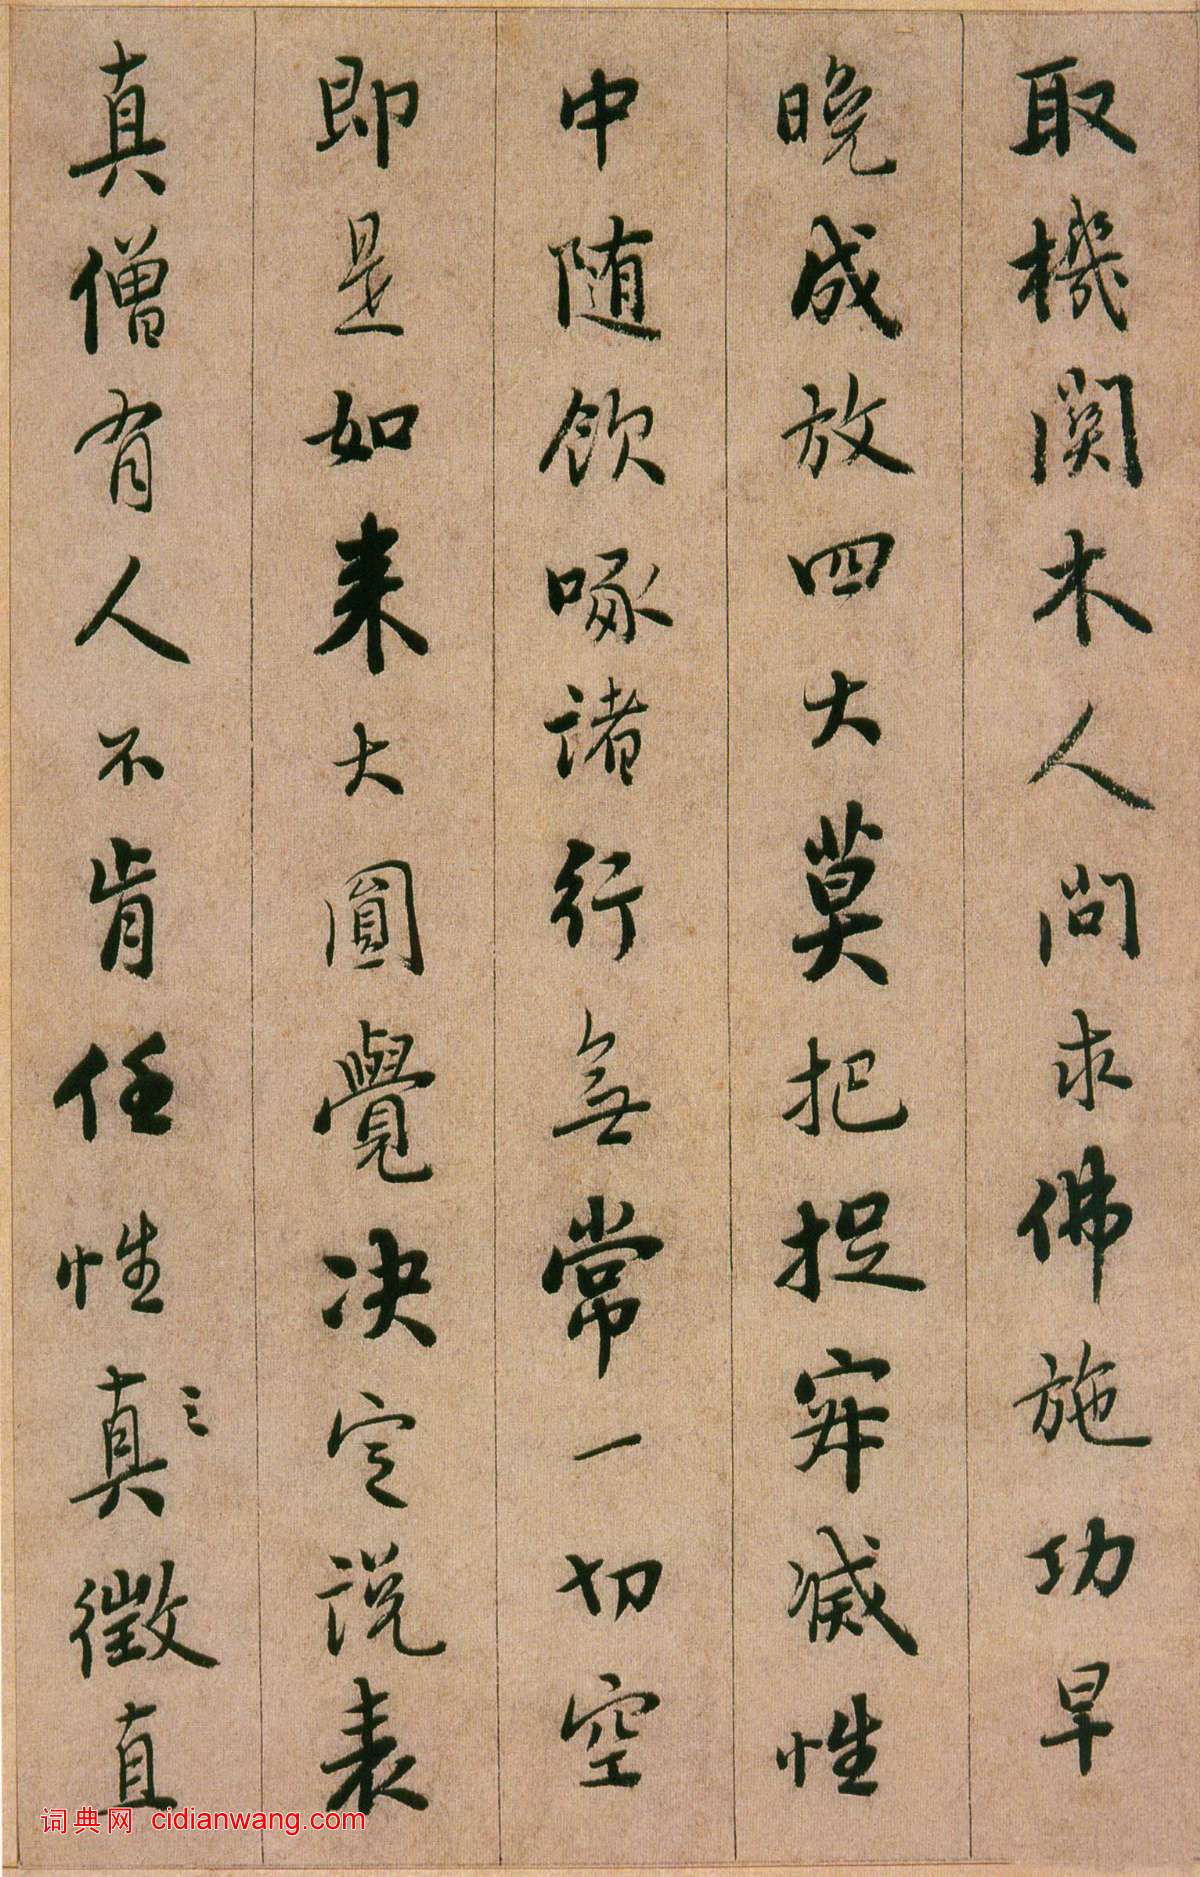 取機関木人問求佛施功早
晚成放四大莫把捉寂滅性
中随飲啄諸行無常一切空
即是如来大圓覺决定説表
真僧有人不肯任性真徵直
三
词典网 cidianwang.com